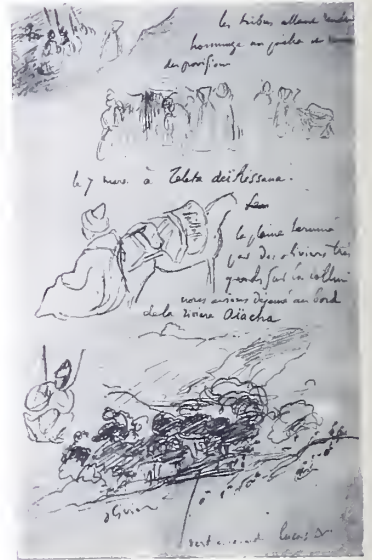 les tribus allant rendre
hommage au pacha de
des provisions
le 7 mars. à Teleta deï Rissana.
la plaine terminée
par des oliviers très
grands sur la colline
nous avions déjeuné au bord
de la rivière Aïacha
olivier
vert